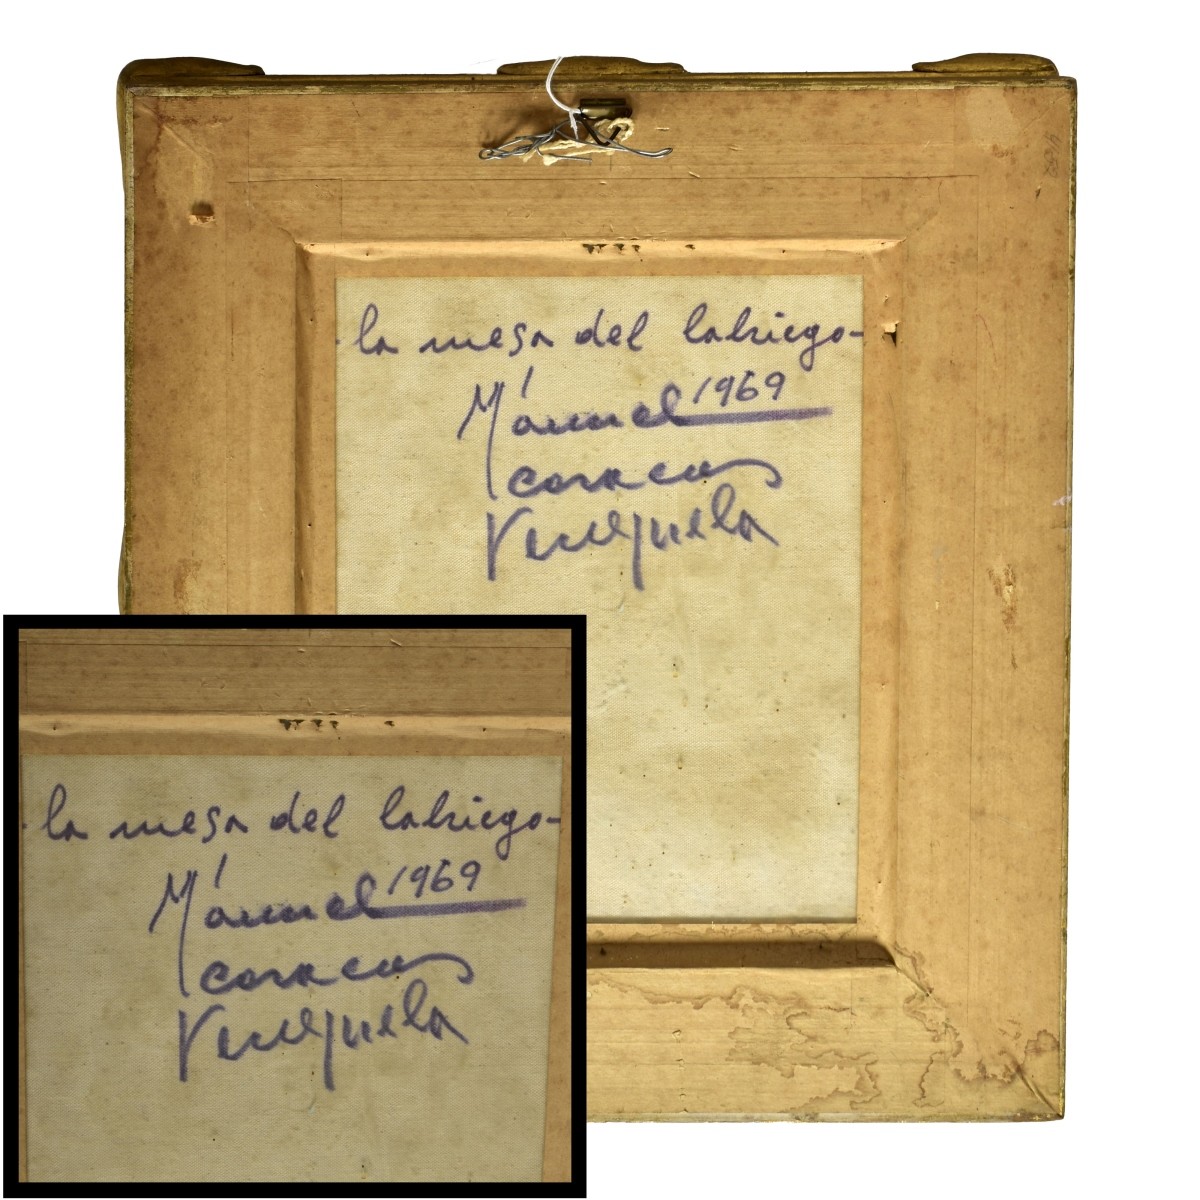 la mesa del labriego-
Mánuel 1969
caracas
Venezuela
la mesa del labriego-
Mánuel 1969
caracas
Venezuela